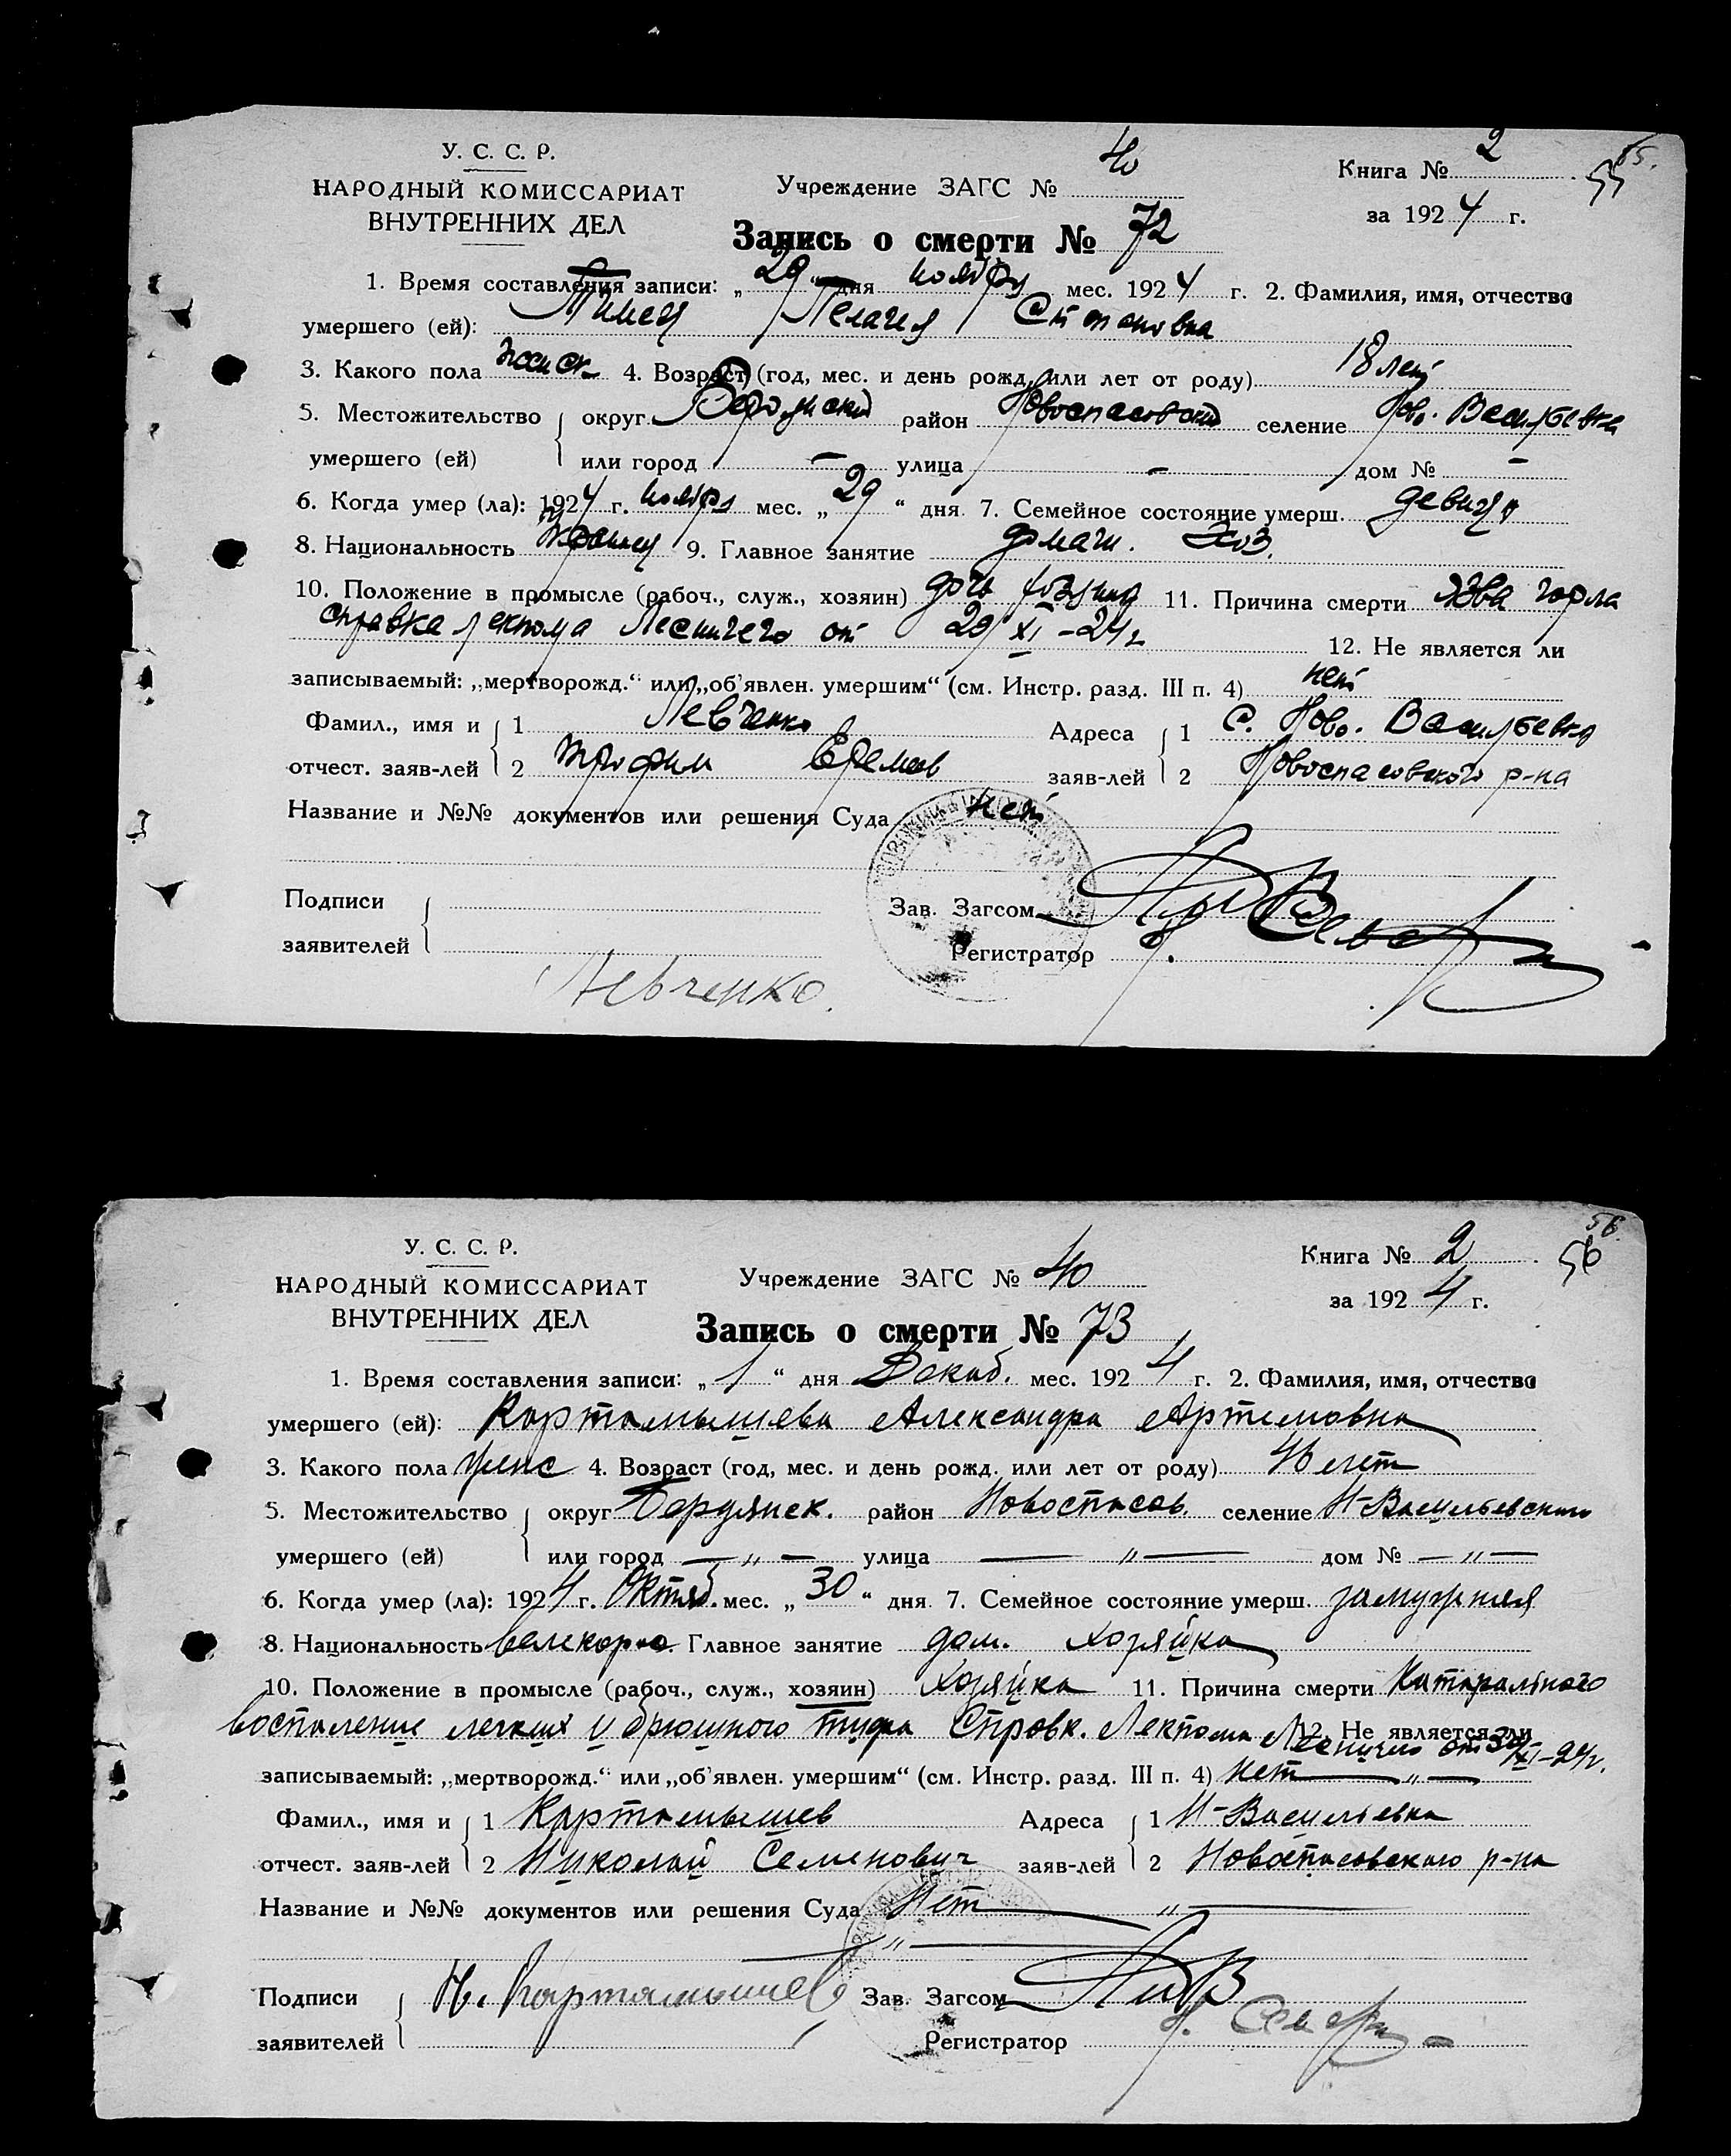 У. С. С. Р.
НАРОДНЫЙ КОМИССАРИАТ
ВНУТРЕННИХ ДЕЛ
Учреждение ЗАГС № 40
Книга № 2
55.
55
за 1924 г.
Запись о смерти № 72
1. Время составления записи: „29“ дня ноября мес. 1924 г. 2. Фамилия, имя, отчество
умершего (ей): Пелагея Степановна
3. Какого пола женск. 4. Возраст (год, мес. и день рожд. или лет от роду) 18 лет
5. Местожительство округ Бердянский район Новоспасовский селение Ново. Васильевка
умершего (ей) или город — улица — дом № —
6. Когда умер (ла): 1924 г. ноября мес. „29“ дня 7. Семейное состояние умерш. девица
8. Национальность 9. Главное занятие домаш. хоз.
10. Положение в промысле (рабоч., служ., хозяин) дочь 11. Причина смерти язва горла
справка лекпома Лесничего от 29/XI-24 г 12. Не является ли
записываемый: „мертворожд.“ или „об'явлен. умершим“ (см. Инстр. разд. III п. 4) нет
Фамил., имя и 1 Левченко Адреса 1 с. Ново. Васильевка
отчест. заяв-лей 2 Трофим Еремеев заяв-лей 2 Новоспасовского р-на
Название и №№ документов или решения Суда нет
Подписи
Зав. Загсом
заявителей
Регистратор
Левченко.
У. С. С. Р.
НАРОДНЫЙ КОМИССАРИАТ
ВНУТРЕННИХ ДЕЛ
Учреждение ЗАГС № 40
Книга № 2
56.
56
за 1924 г.
Запись о смерти № 73
1. Время составления записи: „1“ дня Декаб. мес. 1924 г. 2. Фамилия, имя, отчество
умершего (ей): Картамышева Александра Артемовна
3. Какого пола женс 4. Возраст (год, мес. и день рожд. или лет от роду) 46 лет
5. Местожительство округ Бердянск. район Новоспасов. селение Н-Васильевского
умершего (ей) или город — „ — улица — „ — дом № — „ —
6. Когда умер (ла): 1924 г. Октяб. мес. „30“ дня 7. Семейное состояние умерш. замужняя
8. Национальность Главное занятие дом. хозяйка
10. Положение в промысле (рабоч., служ., хозяин) Хозяйка 11. Причина смерти Катарального
воспаление легких и брюшного тифа Справк. Лекпома Лесничего от 30/XI-24г. 12. Не является ли
записываемый: „мертворожд.“ или „об'явлен. умершим“ (см. Инстр. разд. III п. 4) нет — „ —
Фамил., имя и 1 Картамышев Адреса 1 Н-Васильевка
отчест. заяв-лей 2 Николай Семенович заяв-лей 2 Новоспасовского р-на
Название и №№ документов или решения Суда Нет — „ —
— „ —
Подписи Н. Картамышев Зав. Загсом
заявителей
Регистратор